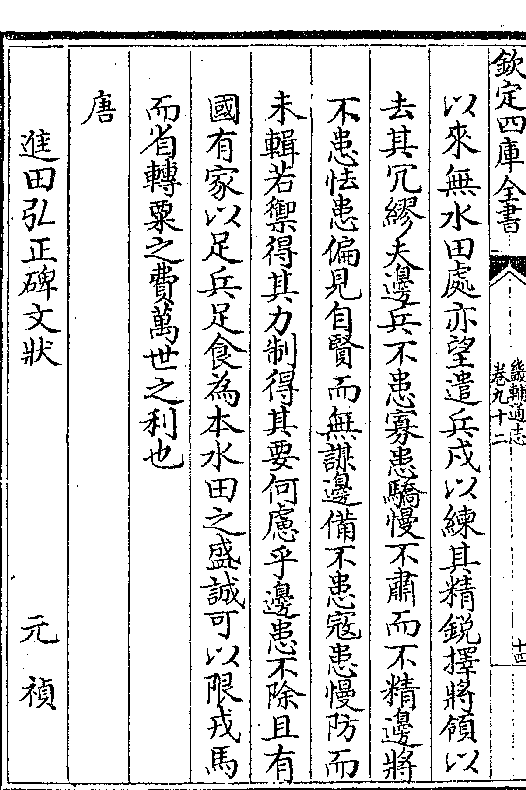 欽定四庫全書
畿輔通志
卷九十二
十四
以來無水田處亦望遣兵戍以練其精銳擇將領以
去其冗繆夫邊兵不患寡患驕慢不肅而不精邊將
不患怯患偏見自賢而無謀邊備不患寇患慢防而
未輯若禦得其力制得其要何慮乎邊患不除且有
國有家以足兵足食為本水田之盛誠可以限戎馬
而省轉粟之費萬世之利也
唐
進田弘正碑文狀 元稹